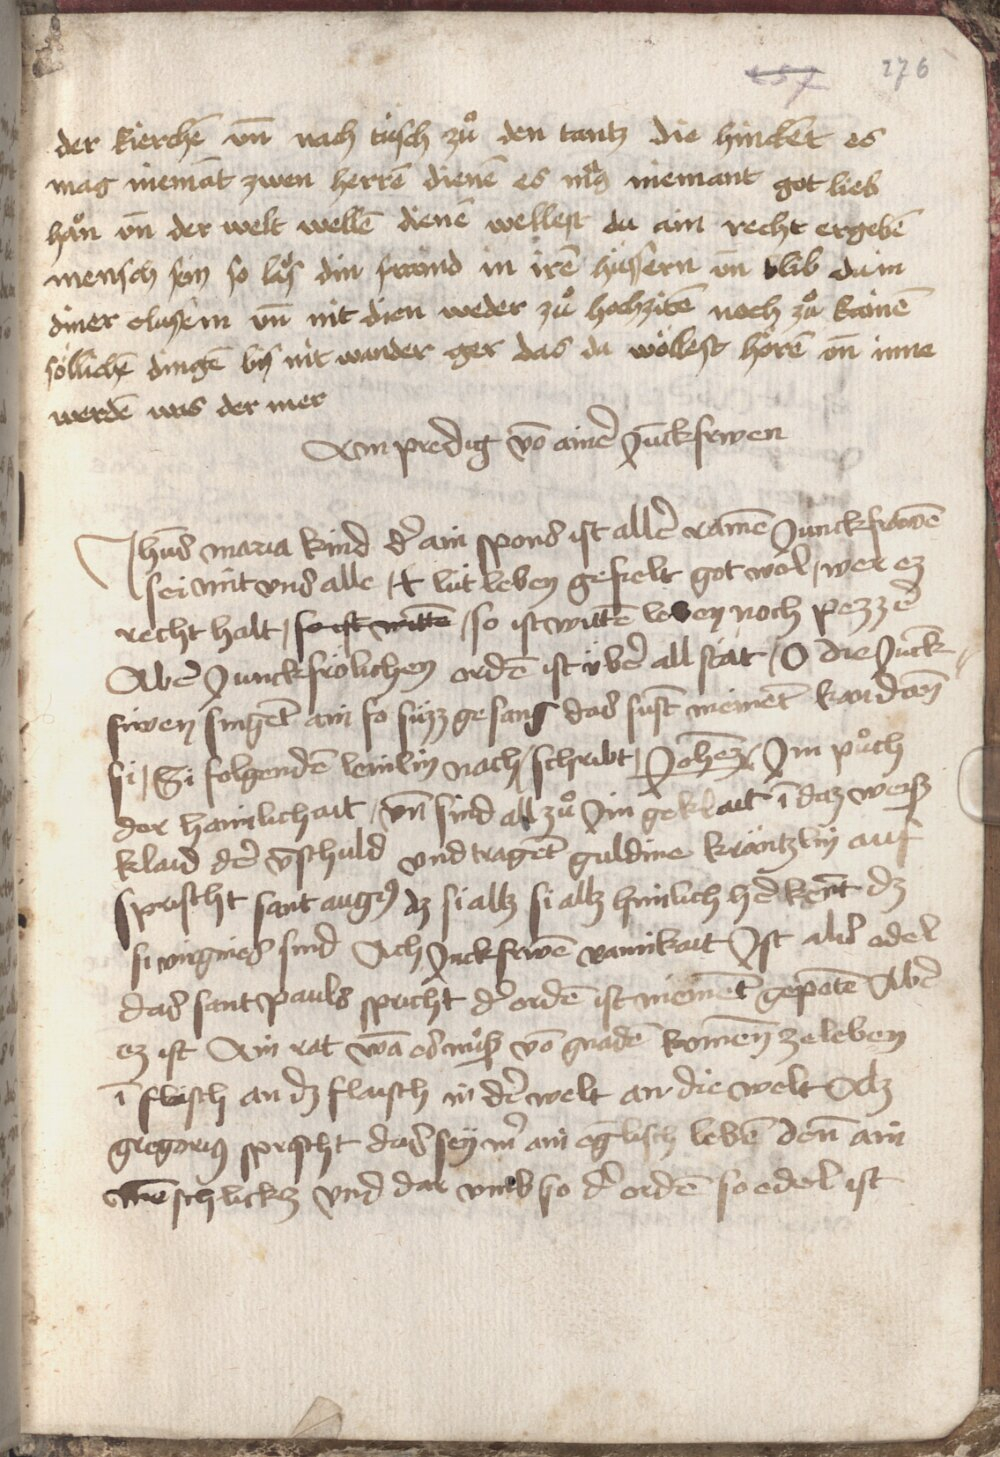 276
der kierchē vn̄ nach tisch zů den tantz die hinckēt es
mag niemāt zwen herrē dienē es mag niemant got lieb
hån vn̄ der welt wellē dienē wellest du ain recht ergebē
mensch sein so las din fraind in irē hüssern vn̄ blib du in
diner clusen vn̄ nit dien weder zů hochzitē noch zů kainē
söllichē dingē bis nit wunder ger das du wöllest hörē vn̄ inne
werdē was der mer
Ain predig vō ainer Junckfrwen
Jhūs maria kind d' ain spons ist aller rainē Junckfrawē
sei mit vns alle Et lüt leben gefielt got wol / wer ez
recht halt / so ist wittē / so ist wittē leben noch pezzer
Aber Junckfrölichen ordē ist über all stät / O die Junck
frwen singēt ain so süzz gesang das sust niemēt kan dann
si / Si folgendē lemlin nach / schribt / Johēz / Jm půch
der hainlichait / vn̄ sind all zů Jm geklait ī daz weisz
klaid der vnschuld vnd tragēt guldine kräntzlin auf
spricht sant aug9 dz si allz si allz hmlich her kent dz
si virgines sind Ach Juckfrwē rainikait Ist als edel
das sant pauls spricht d' ordē ist niemēt gepotē Aber
ez ist Ain rat wā es můß vō gnadē komen zeleben
ī flaisch an dz flaisch in der welt an die welt Alz
gregori9 spricht das sey mer ain eglisch lebē den ain
menschlickz vnd dar vmb so d' ordē so edel ist